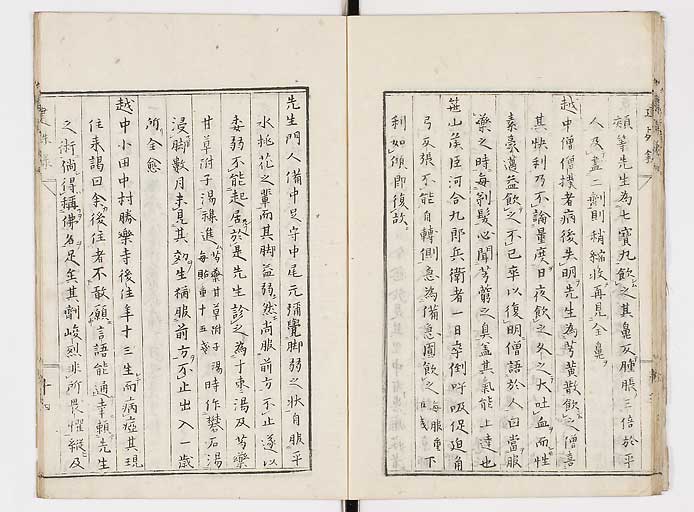 頬等先生為七寶丸飲之其鼻反腫脹三倍於平
人及盡二劑則稍縮收再見全鼻
越中僧僧撲者病後失明先生為芎黄散飲之僧喜
其快利乃不論量度日夜飲之久之大吐血而性
素豪邁益飲之不已卒以復明僧語於人曰當服
藥之時毎剃髪必聞芎藭之臭盖其氣能上達也
笹山矦臣河合九郎兵衛者一日卒倒呼吸促迫角
弓反張不能自轉側急為備急圓飲之毎服重下
利如傾即復故
先生門人備中足守中尾元彌覺脚弱之状自服平
水桃花之輩而其脚益弱然尚服前方不止遂以
委弱不能起居於是先生診之為十棗湯及芍藥
甘草附子湯雜進芍藥甘草附子湯毎貼重十五錢時作礬石湯
浸脚數月未見其効生稱服前方不止出入一歳
所全愈
越中小田中村勝樂寺後住年十三生而病瘂其現
住來謁曰余後住者不敢願言語能通幸賴先生
之術倘得稱佛名足矣其劑峻烈非所畏懼縱及